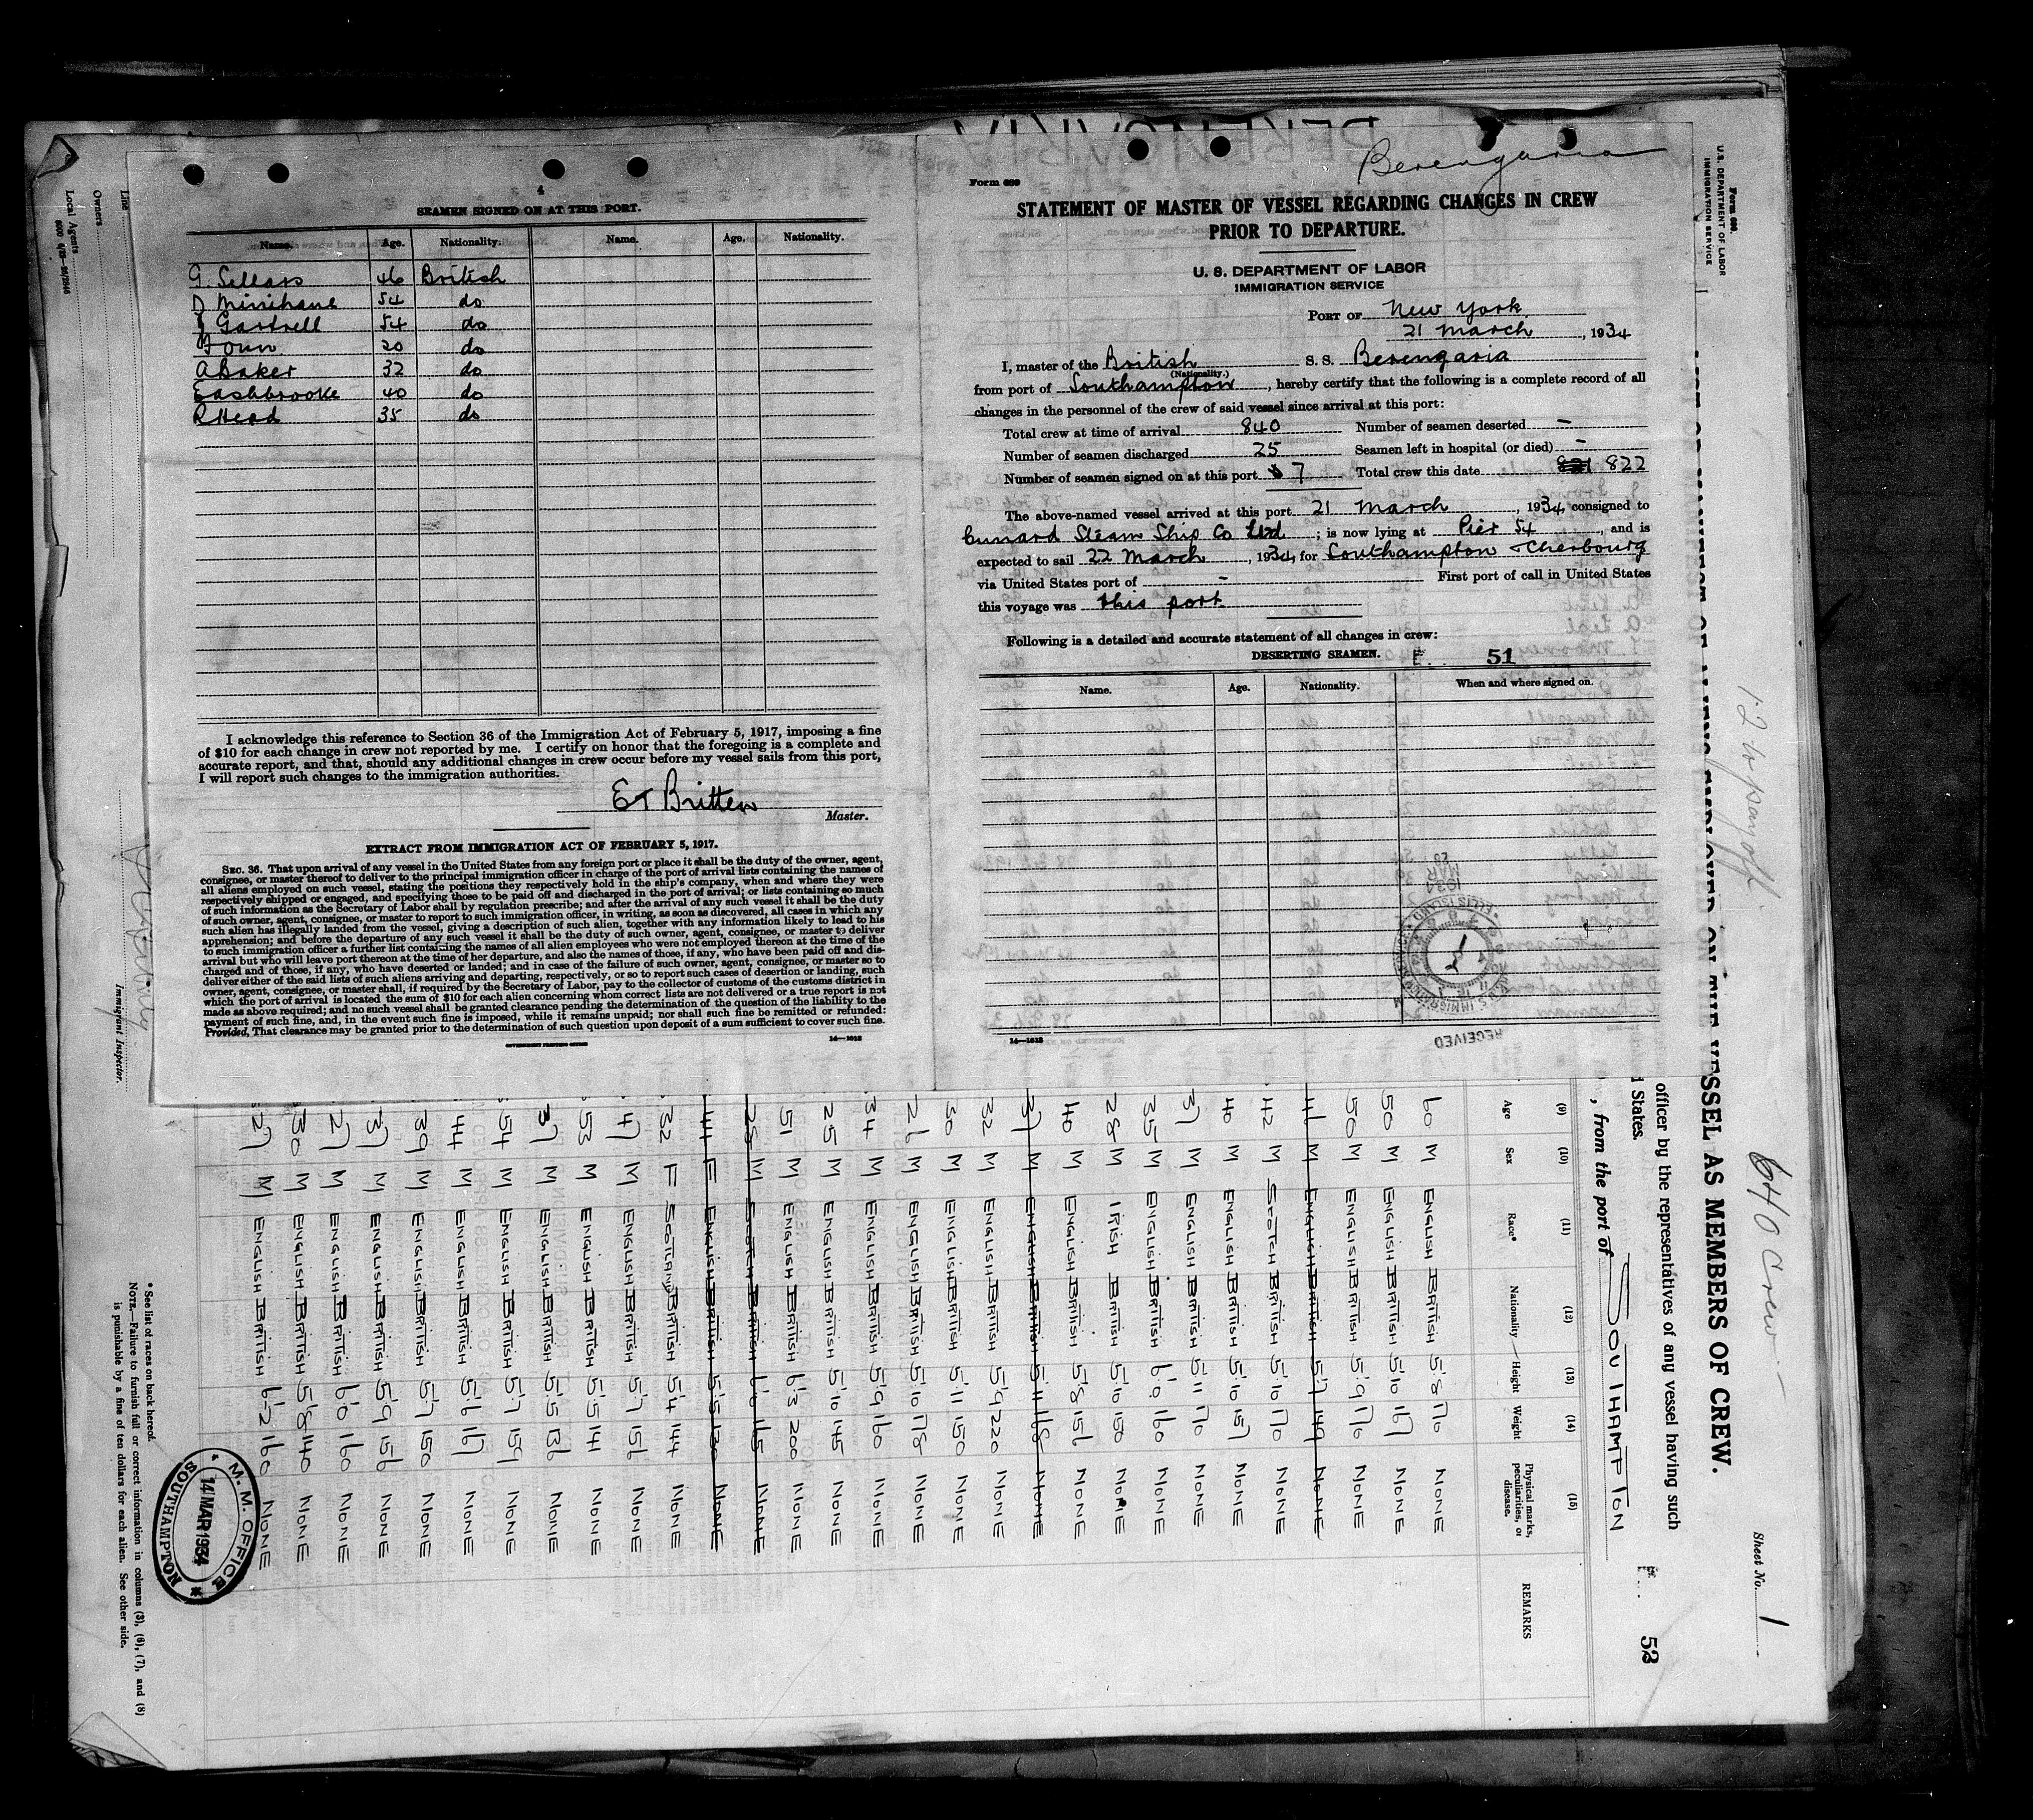 4
SEAMEN SIGNED ON AT THIS PORT.
Name. Age. Nationality. Name. Age. Nationality.
G. Sellars 46 British
D Minihane 54 do
J Gartrell 54 do
20 do
A Baker 32 do
E Cashbrooke 40 do
R Head 35 do
I acknowledge this reference to Section 36 of the Immigration Act of February 5, 1917, imposing a fine
of $10 for each change in crew not reported by me. I certify on honor that the foregoing is a complete and
accurate report, and that, should any additional changes in crew occur before my vessel sails from this port,
I will report such changes to the immigration authorities.
ET Britten
Master.
EXTRACT FROM IMMIGRATION ACT OF FEBRUARY 5, 1917.
SEC. 36. That upon arrival of any vessel in the United States from any foreign port or place it shall be the duty of the owner, agent,
consignee, or master thereof to deliver to the principal immigration officer in charge of the port of arrival lists containing the names of
all aliens employed on such vessel, stating the positions they respectively hold in the ship's company, when and where they were
respectively shipped or engaged, and specifying those to be paid off and discharged in the port of arrival; or lists containing so much
of such information as the Secretary of Labor shall by regulation prescribe; and after the arrival of any such vessel it shall be the duty
of such owner, agent, consignee, or master to report to such immigration officer, in writing, as soon as discovered, all cases in which any
such alien has illegally landed from the vessel, giving a description of such alien, together with any information likely to lead to his
apprehension; and before the departure of any such vessel it shall be the duty of such owner, agent, consignee, or master to deliver
to such immigration officer a further list containing the names of all alien employees who were not employed thereon at the time of the
arrival but who will leave port thereon at the time of her departure, and also the names of those, if any, who have been paid off and dis-
charged and of those, if any, who have deserted or landed; and in case of the failure of such owner, agent, consignee, or master so to
deliver either of the said lists of such aliens arriving and departing, respectively, or so to report such cases of desertion or landing, such
owner, agent, consignee, or master shall, if required by the Secretary of Labor, pay to the collector of customs of the customs district in
which the port of arrival is located the sum of $10 for each alien concerning whom correct lists are not delivered or a true report is not
made as above required; and no such vessel shall be granted clearance pending the determination of the question of the liability to the
payment of such fine, and, in the event such fine is imposed, while it remains unpaid; nor shall such fine be remitted or refunded:
Provided, That clearance may be granted prior to the determination of such question upon deposit of a sum sufficient to cover such fine.
GOVERNMENT PRINTING OFFICE 14—1018
BERENGARIA
Berengaria
Form 689
STATEMENT OF MASTER OF VESSEL REGARDING CHANGES IN CREW
PRIOR TO DEPARTURE.
U. S. DEPARTMENT OF LABOR
IMMIGRATION SERVICE
PORT OF New York
21 March, 1934
I, master of the British S. S. Berengaria
(Nationality.)
from port of Southampton, hereby certify that the following is a complete record of all
changes in the personnel of the crew of said vessel since arrival at this port:
Total crew at time of arrival 840 Number of seamen deserted –
Number of seamen discharged 25 Seamen left in hospital (or died) –
Number of seamen signed on at this port 7 Total crew this date 821 822
The above-named vessel arrived at this port 21 March, 1934, consigned to
Cunard Steam Ship Co Ltd; is now lying at Pier 54, and is
expected to sail 22 March, 1934, for Southampton & Cherbourg
via United States port of – First port of call in United States
this voyage was this port
Following is a detailed and accurate statement of all changes in crew:
DESERTING SEAMEN. E. 51
Name. Age. Nationality. When and where signed on.
14—1018
U. S. IMMIGRATION SERVICE
ELLIS ISLAND
MAR 1934
RECEIVED
Form 680
U. S. DEPARTMENT OF LABOR
IMMIGRATION SERVICE
12 to pay off
840 Crew
Sheet No. 1
VESSEL AS MEMBERS OF CREW.
officer by the representatives of any vessel having such
States.
, from the port of SOUTHAMPTON
E. 52
(9) (10) (11) (12) (13) (14) (15)
Age Sex Race* Nationality Height Weight Physical marks, peculiarities, or disease. REMARKS
60 M ENGLISH BRITISH 5'8 170 NONE
50 M ENGLISH BRITISH 5'10 167 NONE
50 M ENGLISH BRITISH 5'9 176 NONE
46 M ENGLISH BRITISH 5'7 149 NONE
42 M SCOTCH BRITISH 5'10 170 NONE
40 M ENGLISH BRITISH 5'10 157 NONE
37 M ENGLISH BRITISH 5'11 170 NONE
35 M ENGLISH BRITISH 6'0 160 NONE
28 M IRISH BRITISH 5'10 150 NONE
40 M ENGLISH BRITISH 5'8 156 NONE
37 M ENGLISH BRITISH 5'11 168 NONE
32 M ENGLISH BRITISH 5'9 220 NONE
30 M ENGLISH BRITISH 5'11 150 NONE
26 M ENGLISH BRITISH 5'10 178 NONE
34 M ENGLISH BRITISH 5'9 160 NONE
25 M ENGLISH BRITISH 5'10 145 NONE
51 M ENGLISH BRITISH 6'3 200 NONE
28 M SCOTCH BRITISH 6'0 165 NONE
44 F ENGLISH BRITISH 5'5 130 NONE
32 F SCOTLAND BRITISH 5'4 144 NONE
47 M ENGLISH BRITISH 5'7 156 NONE
53 M ENGLISH BRITISH 5'5 141 NONE
37 M ENGLISH BRITISH 5'5 136 NONE
54 M ENGLISH BRITISH 5'7 159 NONE
44 M ENGLISH BRITISH 5'6 167 NONE
39 M ENGLISH BRITISH 5'7 150 NONE
37 M ENGLISH BRITISH 5'9 156 NONE
27 M ENGLISH BRITISH 6'0 160 NONE
30 M ENGLISH BRITISH 5'8 140 NONE
27 M ENGLISH BRITISH 6'2 160 NONE
M. M. OFFICE
14 MAR 1934
SOUTHAMPTON
* See list of races on back hereof.
NOTE.—Failure to furnish full or correct information in columns (3), (6), (7), and (8)
is punishable by a fine of ten dollars for each alien. See other side.
Line
Owners
Local Agents
Immigrant Inspector.